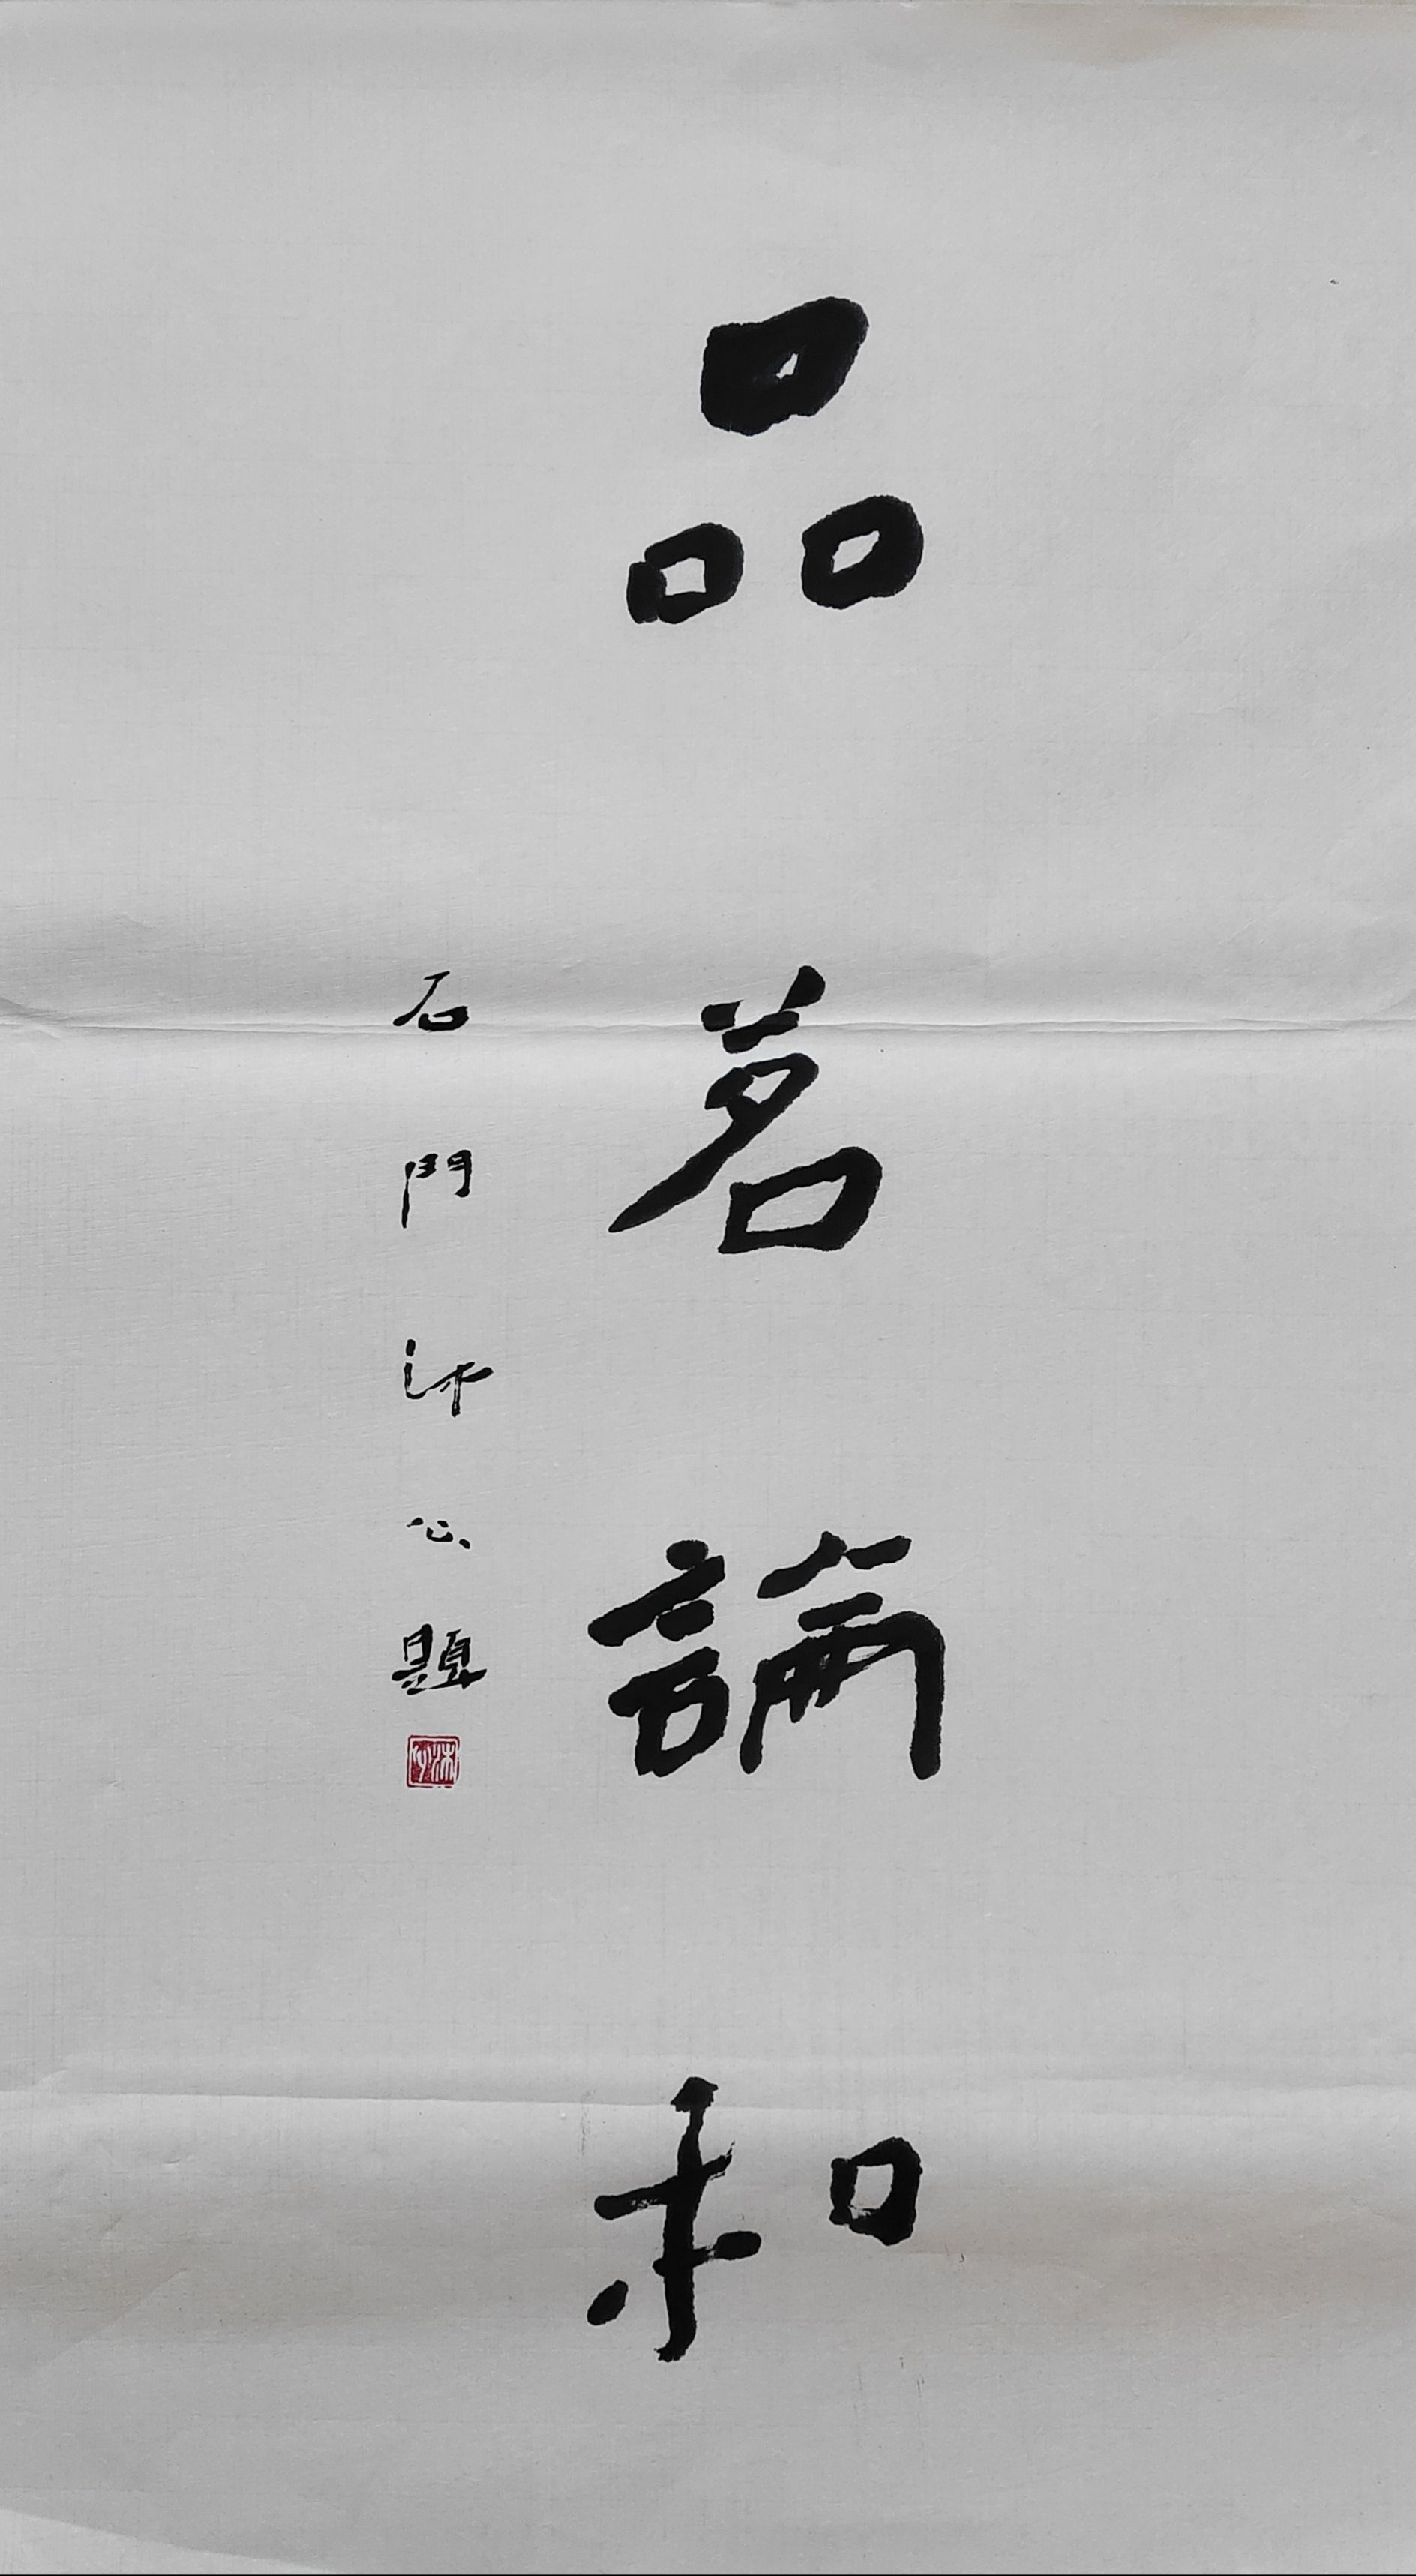 品茗論和
石門沐心題